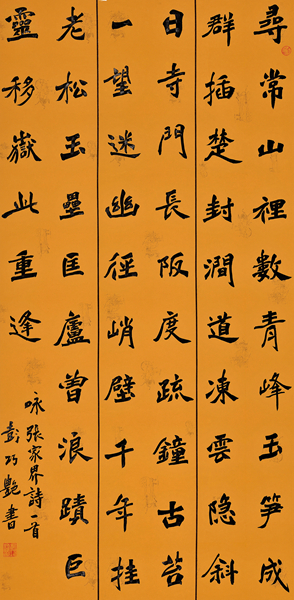 尋常山裡數青峰玉笋成
群插楚封澗道凍雲隐斜
日寺門長阪度疏鐘古苔
一望迷幽徑峭壁千年挂
老松玉壘匡廬曾浪蹟巨
靈移嶽此重逢
咏張家界詩一首
彭巧艷書